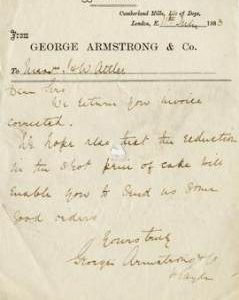 Cumberland Mills, Isle of Dogs,
London, E. 11th 1883
From
GEORGE ARMSTRONG & Co.
To Messrs J & W Attlee
Dear Sirs
We return you invoice
corrected.
We hope also that the reduction
in the spot price of cake will
enable you to send us some
good orders
Yours truly
George Armstrong & Co